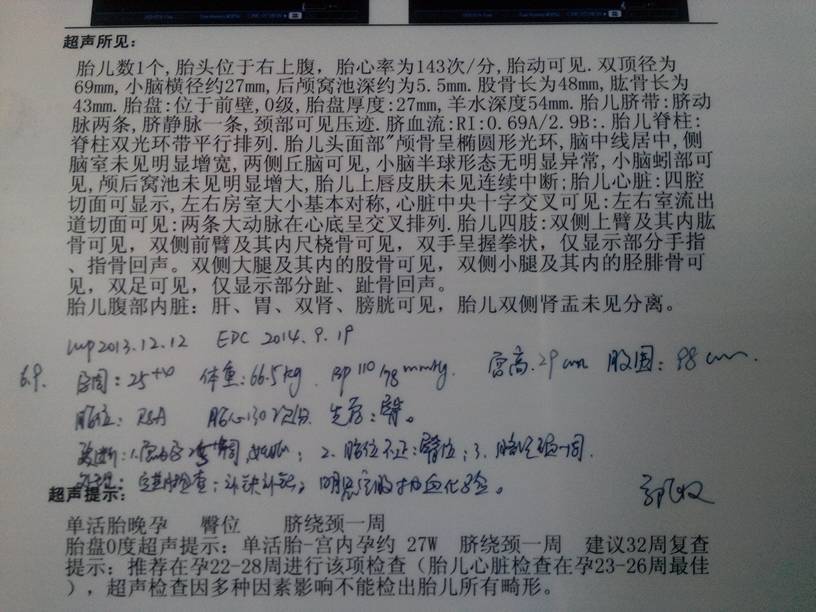 超声所见:
胎儿数1个,胎头位于右上腹, 胎心率为143次/分,胎动可见.双顶径为
69mm,小脑横径约27mm,后颅窝池深约为5.5mm.股骨长为48mm,肱骨长为
43mm.胎盘:位于前壁,0级,胎盘厚度:27mm,羊水深度54mm.胎儿脐带:脐动
脉两条,脐静脉一条,颈部可见压迹.脐血流:RI:0.69A/2.9B:.胎儿脊柱:
脊柱双光环带平行排列.胎儿头面部"颅骨呈椭圆形光环,脑中线居中,侧
脑室未见明显增宽,两侧丘脑可见,小脑半球形态无明显异常,小脑蚓部可
见,颅后窝池未见明显增大,胎儿上唇皮肤未见连续中断;胎儿心脏:四腔
切面可显示,左右房室大小基本对称,心脏中央十字交叉可见:左右室流出
道切面可见:两条大动脉在心底呈交叉排列.胎儿四肢:双侧上臂及其内肱
骨可见, 双侧前臂及其内尺桡骨可见, 双手呈握拳状, 仅显示部分手指
、指骨回声。双侧大腿及其内的股骨可见,双侧小腿及其内的胫腓骨可
见, 双足可见, 仅显示部分趾、趾骨回声。
胎儿腹部内脏: 肝、胃、双肾、膀胱可见, 胎儿双侧肾盂未见分离。
Lmp2013.12.12 EDC 2014.9.19
6.9. 孕周:25+4 体重:66.5kg. BP 110/78mmHg. 宫高.29cm 腹围:98cm.
胎位:RSA 胎心130次/分. 先露:臀。
诊断:1.宫内孕25+4周, ; 2.胎位不正:臀位;3.脐绕颈一周.
处理:定期检查;补铁补钙;明晨空腹抽血化验。
超声提示:
单活胎晚孕 臀位 脐绕颈一周
胎盘0度超声提示: 单活胎-宫内孕约 27W 脐绕颈一周 建议32周复查
提示: 推荐在孕22-28周进行该项检查(胎儿心脏检查在孕23-26周最佳
),超声检查因多种因素影响不能检出胎儿所有畸形。